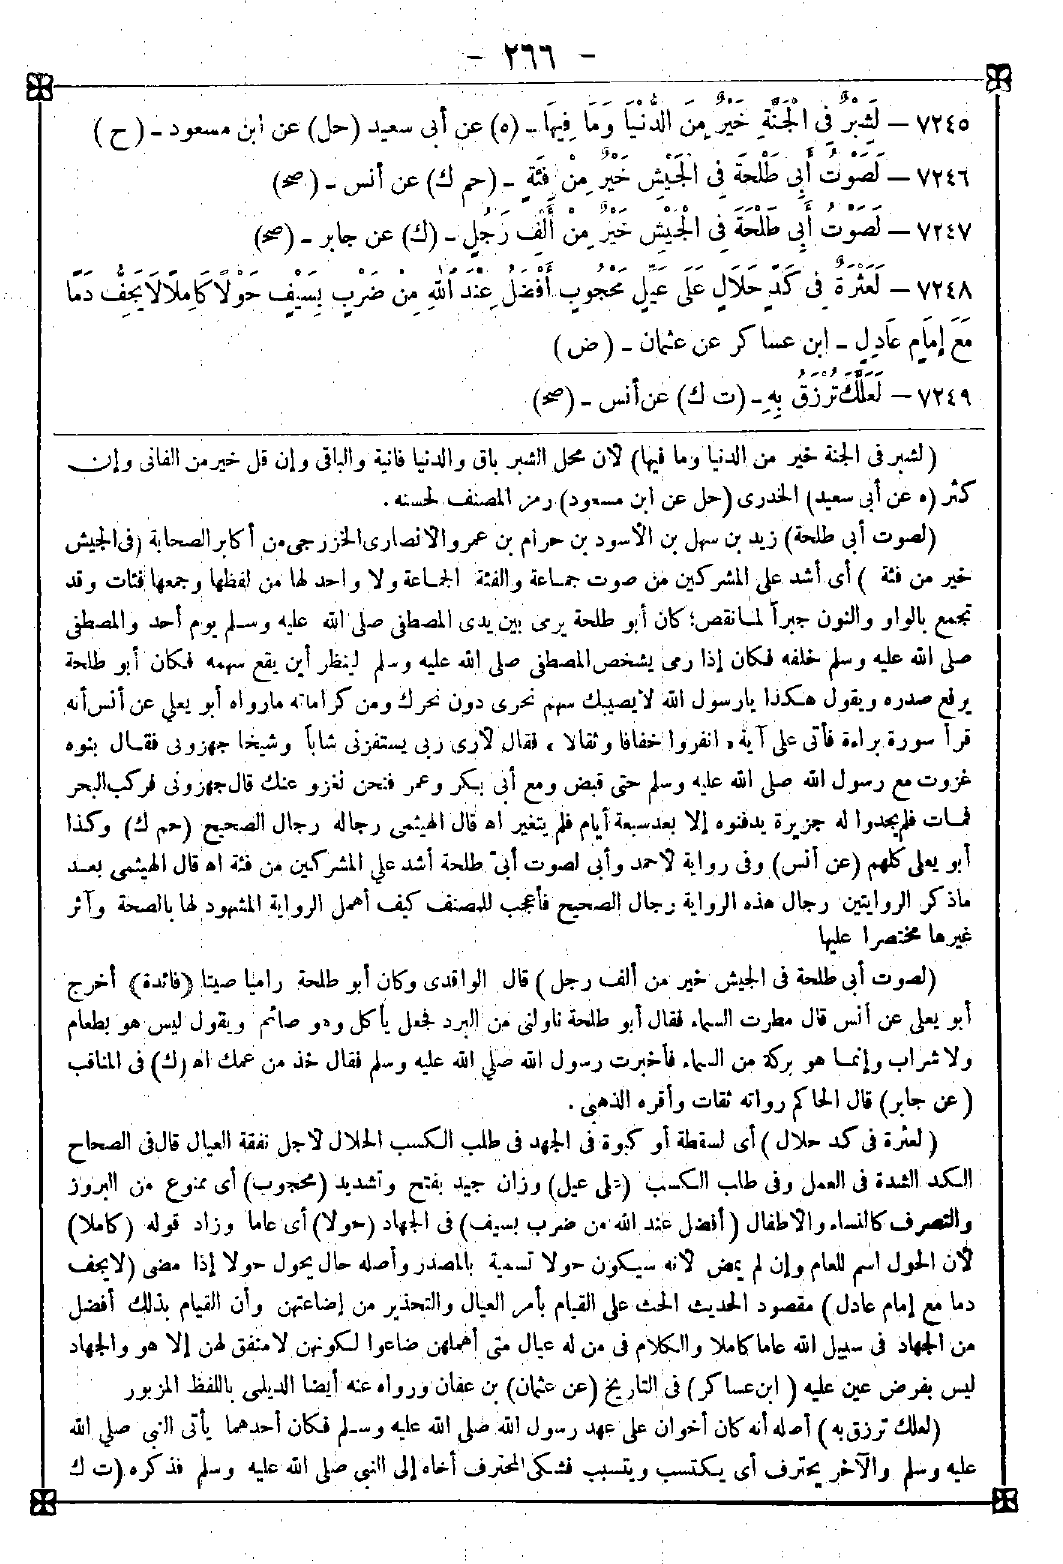 - ٢٦٦ -
٧٢٤٥ – لَشِبْرٌ فِى الْجَنَّةِ خَيْرٌ مِنَ الدُّنْيَا وَمَا فِيهَا - (ه) عن أبى سعيد (حل) عن ابن مسعود - (ح)
٧٢٤٦ – لَصَوْتُ أَبِى طَلْحَةَ فِى الْجَيْشِ خَيْرٌ مِنْ فِئَةٍ - (حم ك) عن أنس - (صح)
٧٢٤٧ – لَصَوْتُ أَبِى طَلْحَةَ فِى الْجَيْشِ خَيْرٌ مِنْ أَلْفِ رَجُلٍ - (ك) عن جابر - (صح)
٧٢٤٨ – لَعَثْرَةٌ فِى كَدِّ حَلَالٍ عَلَى عَيِّلٍ مَحْجُوبٍ أَفْضَلُ عِنْدَ اللهِ مِنْ ضَرْبٍ بِسَيْفٍ حَوْلًا كَامِلًا لَا يَجِفُّ دَمًا
مَعَ إِمَامٍ عَادِلٍ - ابن عساكر عن عثمان - (ض)
٧٢٤٩ – لَعَلَّكَ تُرْزَقُ بِهِ - (ت ك) عن أنس - (صح)
(لشبر فى الجنة خير من الدنيا وما فيها) لأن محل الشبر باق والدنيا فانية والباقى وإن قل خير من الفانى وإن
كثر (ه عن أبى سعيد) الخدرى (حل عن ابن مسعود) رمز المصنف لحسنه .
(لصوت أبى طلحة) زيد بن سهل بن الأسود بن حرام بن عمرو الانصارى الخزرجى من أكابر الصحابة (فى الجيش
خير من فئة ) أى أشد على المشركين من صوت جماعة والفئة الجماعة ولا واحد لها من لفظها وجمعها فئات وقد
تجمع بالواو والنون جبراً لما نقص؛ كان أبو طلحة يرمى بين يدى المصطفى صلى الله عليه وسلم يوم أحد والمصطفى
صلى الله عليه وسلم خلفه فكان إذا رمى يشخص المصطفى صلى الله عليه وسلم لينظر أين يقع سهمه فكان أبو طلحة
يرفع صدره ويقول هكذا يارسول الله لايصيبك سهم نحرى دون نحرك ومن كراماته مارواه أبو يعلى عن أنس أنه
قرأ سورة براءة فأتى على آية ، انفروا خفافا وثقالا ، فقال لأرى ربى يستفزنى شاباً وشيخا جهزونى فقال بنوه
غزوت مع رسول الله صلى الله عليه وسلم حتى قبض ومع أبى بكر وعمر فنحن نغزو عنك قال جهزونى فركب البحر
فمات فلم يجدوا له جزيرة يدفنوه إلا بعد سبعة أيام فلم يتغير اه قال الهيثمى رجاله رجال الصحيح (حم ك) وكذا
أبو يعلى كلهم (عن أنس) وفى رواية لاحمد وأبى لصوت أبى طلحة أشد على المشركين من فئة اه قال الهيثمى بعد
ماذكر الروايتين رجال هذه الرواية رجال الصحيح فأعجب للمصنف كيف أهمل الرواية المشهود لها بالصحة وآثر
غيرها مختصرا عليها
(لصوت أبى طلحة فى الجيش خير من ألف رجل ) قال الواقدى وكان أبو طلحة راميا صيتا (فائدة) أخرج
أبو يعلى عن أنس قال مطرت السماء فقال أبو طلحة ناولنى من البرد فجعل يأكل وهو صائم ويقول ليس هو بطعام
ولا شراب وإنما هو بركة من السماء فأخبرت رسول الله صلى الله عليه وسلم فقال خذ من عمك اه (ك) فى المناقب
(عن جابر) قال الحاكم رواته ثقات وأقره الذهبى .
( لعثرة فى كد حلال ) أى لسقطة أو كبوة فى الجهد فى طلب الكسب الحلال لاجل نفقة العيال قال فى الصحاح
الكد الشدة فى العمل وفى طلب الكسب (على عيل) وزان جيد بفتح وتشديد (محجوب) أى ممنوع من البروز
والتصرف كالنساء والاطفال (أفضل عند الله من ضرب بسيف) فى الجهاد (حولا) أى عاما وزاد قوله (كاملا)
لأن الحول اسم للعام وإن لم يمض لأنه سيكون حولا تسمية بالمصدر وأصله حال يحول حولا إذا مضى (لايجف
دما مع إمام عادل) مقصود الحديث الحث على القيام بأمر العيال والتحذير من إضاعتهن وأن القيام بذلك أفضل
من الجهاد فى سبيل الله عاما كاملا والكلام فى من له عيال متى أهملهن ضاعوا لكونهن لامنفق لهن إلا هو والجهاد
ليس بفرض عين عليه (ابن عساكر) فى التاريخ (عن عثمان) بن عفان ورواه عنه أيضا الديلمى باللفظ المزبور
(لعلك ترزق به) أصله أنه كان أخوان على عهد رسول الله صلى الله عليه وسلم فكان أحدهما يأتى النبى صلى الله
عليه وسلم والآخر يحترف أى يكتسب ويتسبب فشكى المحترف أخاه إلى النبى صلى الله عليه وسلم فذكره (ت ك